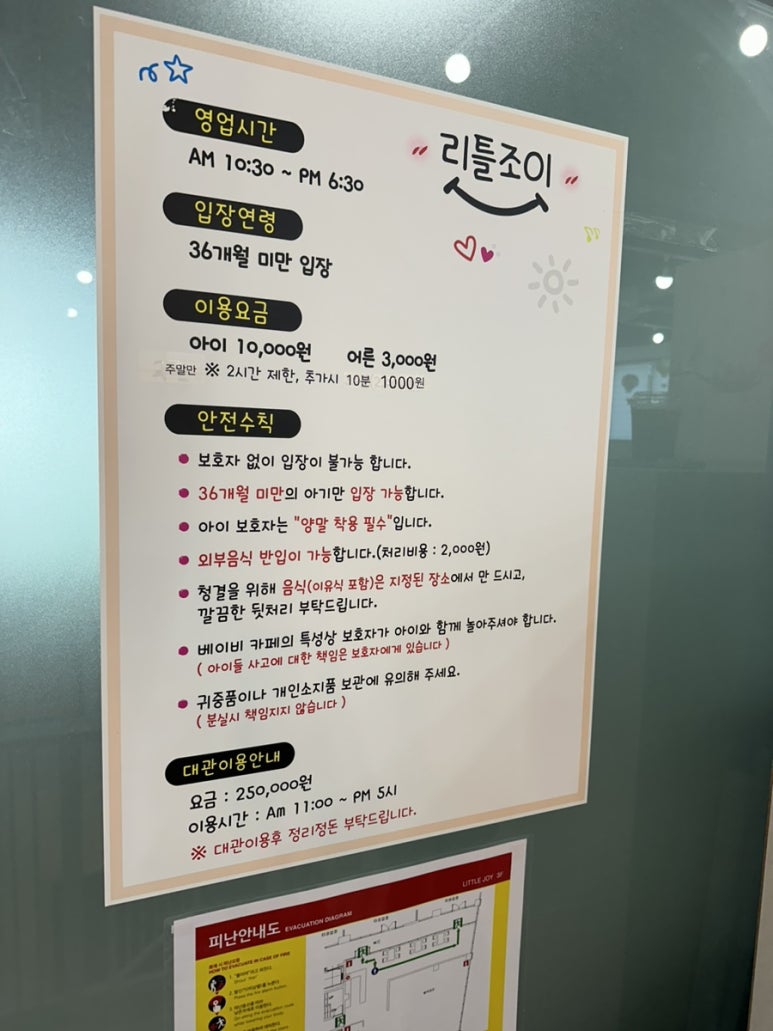 영업시간
AM 10:30 ~ PM 6:30
리틀조이
입장연령
36개월 미만 입장
이용요금
아이 10,000원 어른 3,000원
주말만 ※ 2시간 제한, 추가시 10분 1000원
안전수칙
보호자 없이 입장이 불가능 합니다.
36개월 미만의 아기만 입장 가능합니다.
아이 보호자는 "양말 착용 필수"입니다.
외부음식 반입이 가능합니다.(처리비용 : 2,000원)
청결을 위해 음식(이유식 포함)은 지정된 장소에서 만 드시고,
깔끔한 뒷처리 부탁드립니다.
베이비 카페의 특성상 보호자가 아이와 함께 놀아주셔야 합니다.
( 아이들 사고에 대한 책임은 보호자에게 있습니다 )
귀중품이나 개인소지품 보관에 유의해 주세요.
( 분실시 책임지지 않습니다 )
대관이용안내
요금 : 250,000원
이용시간 : Am 11:00 ~ PM 5시
※ 대관이용후 정리정돈 부탁드립니다.
피난안내도 EVACUATION DIAGRAM
LITTLE JOY 3F
HOW TO EVACUATE IN CASE OF FIRE